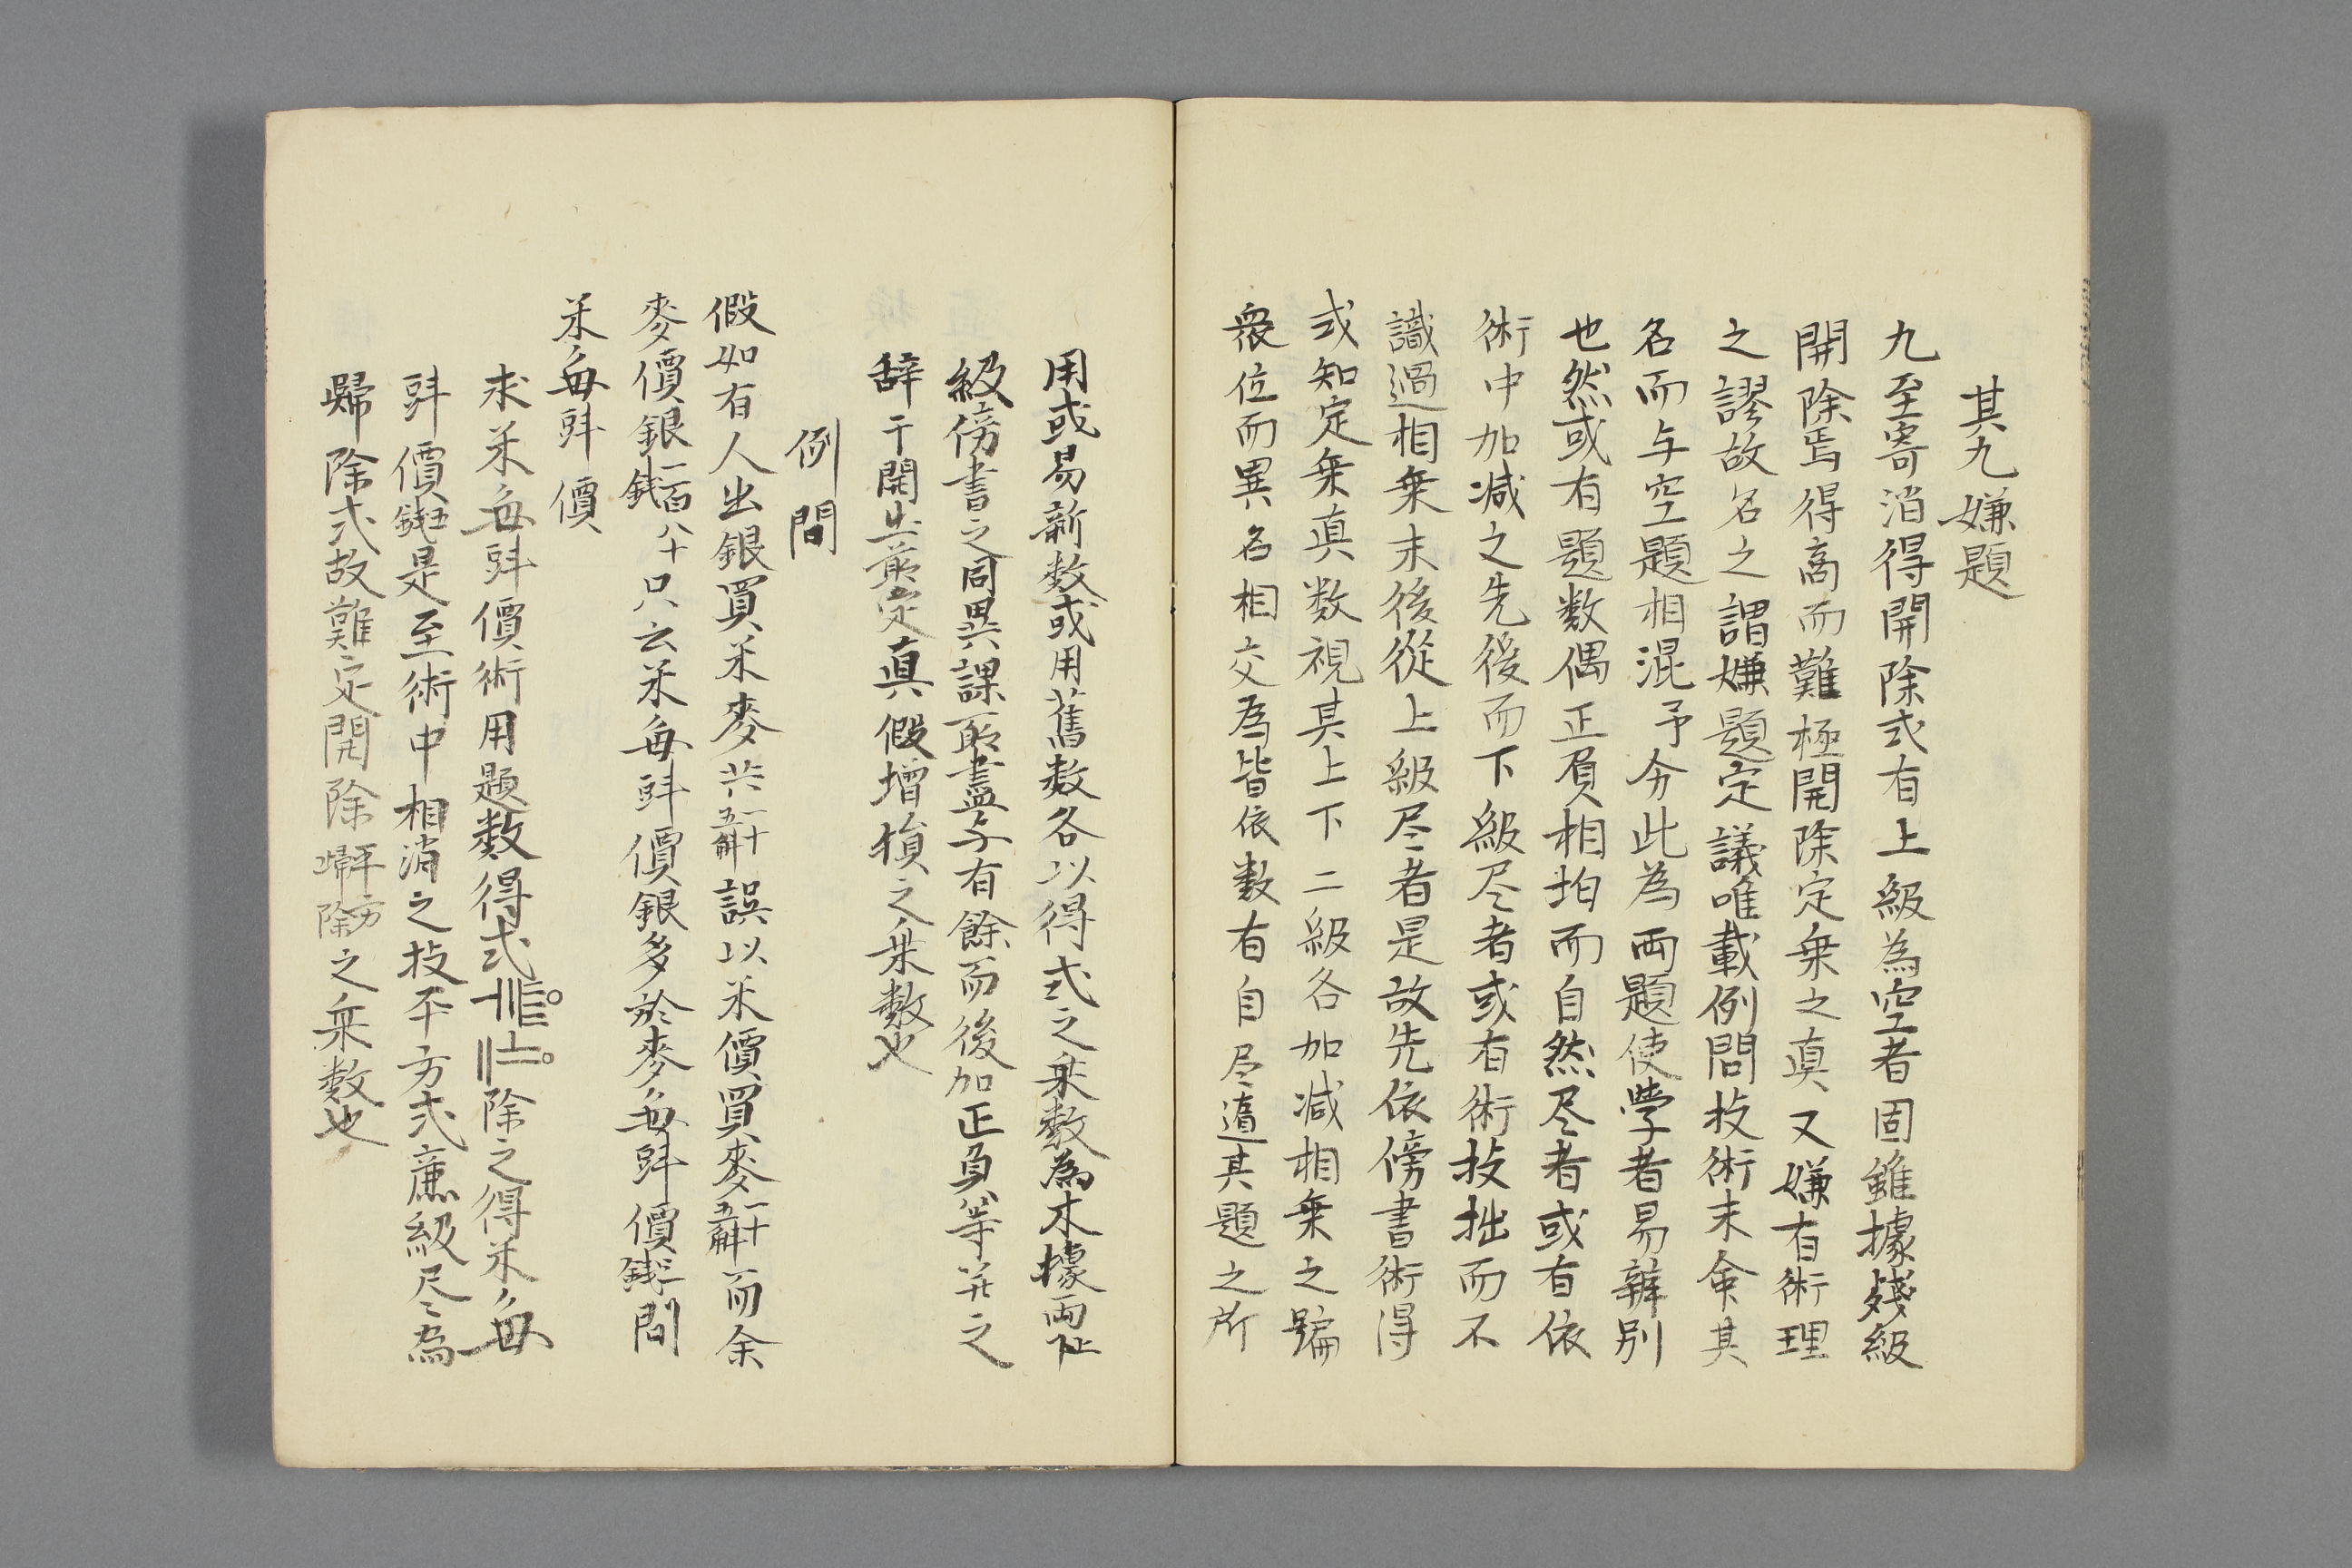 其九嫌題
九至寄消得開除式有上級為空者固雖據残級
開除焉得商而難極開除定乗之真又嫌有術理
之謬故名之謂嫌題定議唯載例問技術末命其
名而与空題相混予分此為両題使学者易辨別
也然或有題数偶正負相均而自然尽者或有依
術中加减之先後而下級尽者或有術技拙而不
識過相乗末後從上級尽者是故先依傍書術得
或知定乗真数視其上下二級各加减相乗之
衆位而異名相交為皆依数有自尽遁其題之所
用或易新数或用舊数各以得式之乗数為本據両
級傍書之同異課取盡与有餘而後加正負等并之
辞于開出前定真假増損之乗数也
例問
假如有人出銀買米麥共一十五斛誤以米價買麥一十五斛而余
麥價銀一百八十銭只云米毎斗價銀多於麥毎斗價二銭問
米毎斗價
求米毎斗價術用題数得式除之得米毎
斗價五銭是至術中相消之技平方式亷級尽為
歸除式故難定開除平方歸除之乗数也